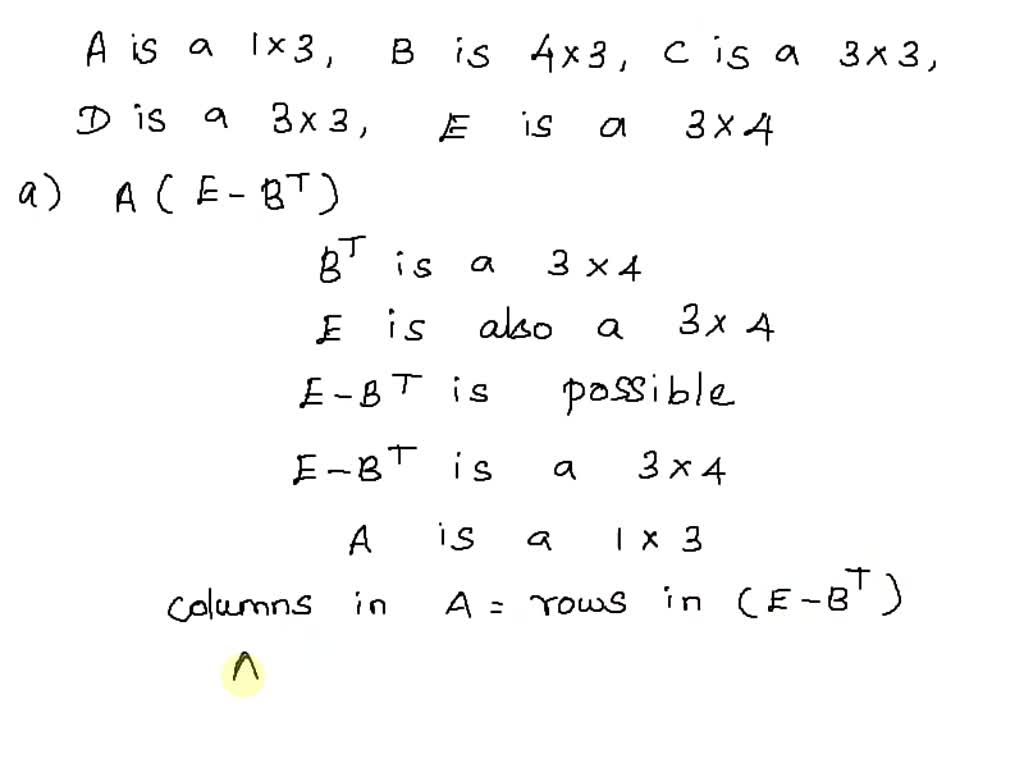 A is a 1×3, B is 4×3, C is a 3×3,
D is a 3×3, E is a 3×4
a) A(E-Bᵀ)
Bᵀ is a 3×4
E is also a 3×4
E-Bᵀ is possible
E-Bᵀ is a 3×4
A is a 1×3
columns in A = rows in (E-Bᵀ)
A